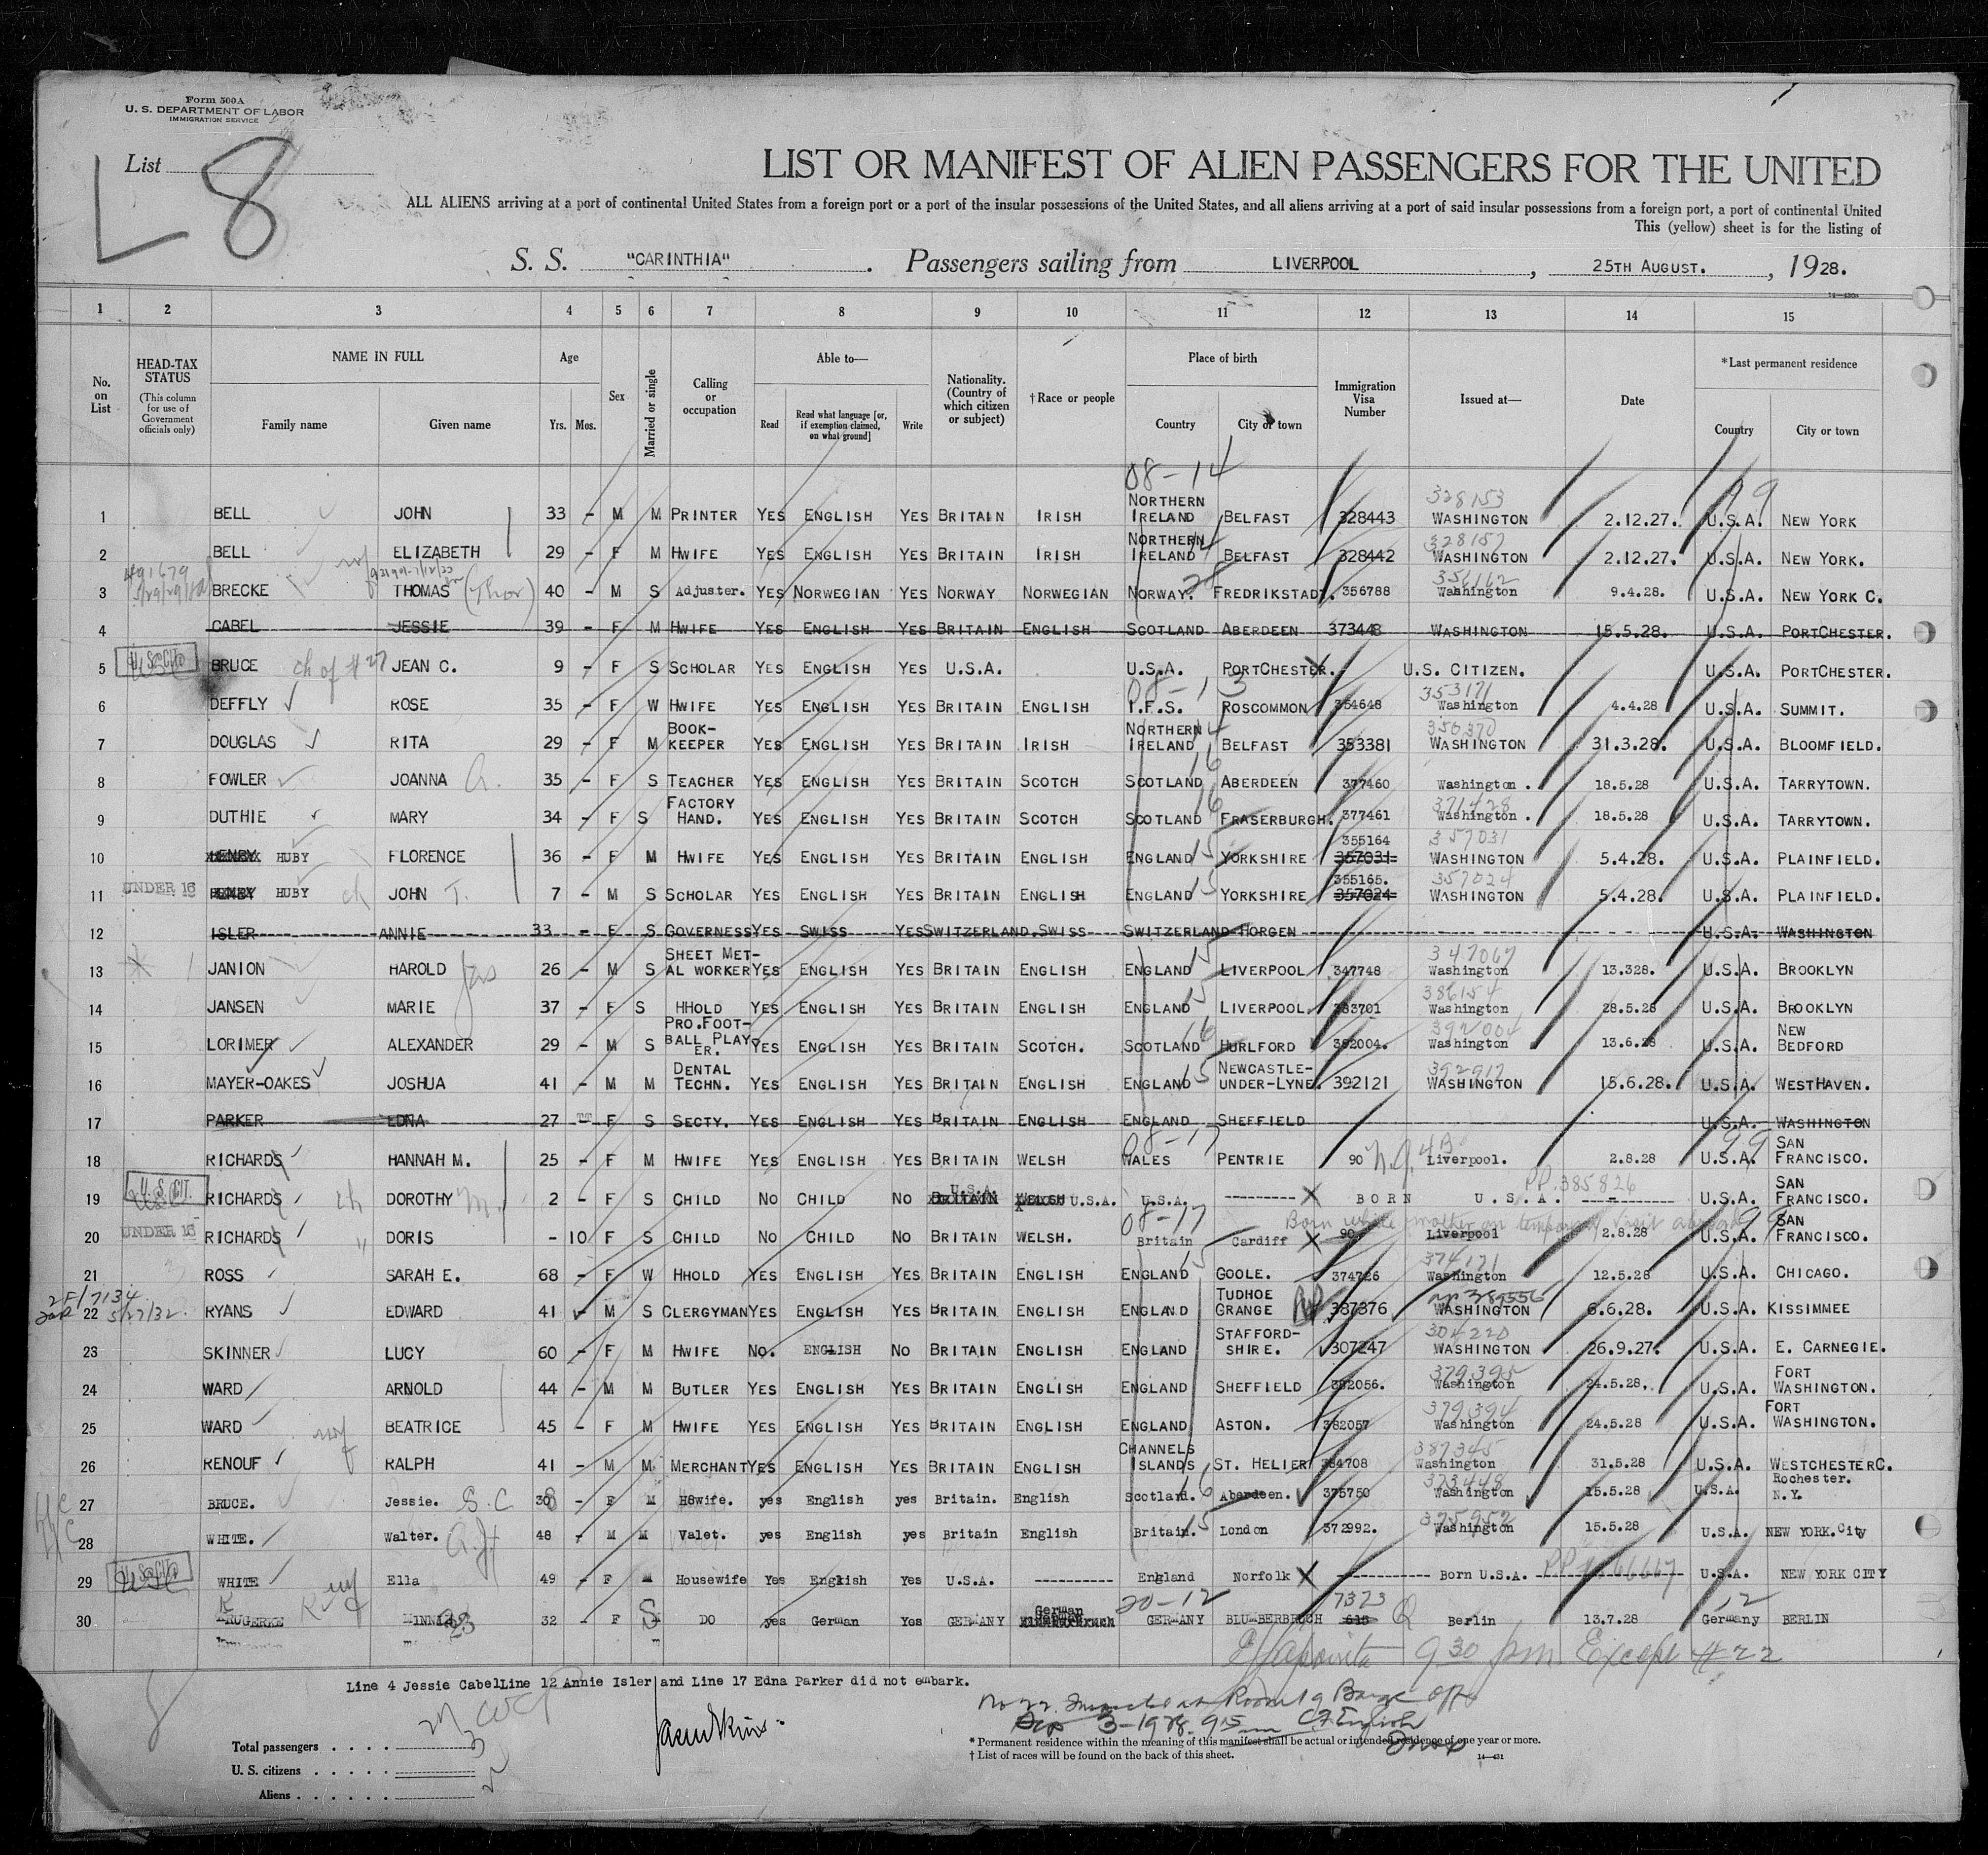 Form 500A
U. S. DEPARTMENT OF LABOR
IMMIGRATION SERVICE
List
L 8
LIST OR MANIFEST OF ALIEN PASSENGERS FOR THE UNITED
ALL ALIENS arriving at a port of continental United States from a foreign port or a port of the insular possessions of the United States, and all aliens arriving at a port of said insular possessions from a foreign port, a port of continental United
This (yellow) sheet is for the listing of
S. S. "CARINTHIA". Passengers sailing from LIVERPOOL, 25TH AUGUST., 1928.
1 2 3 4 5 6 7 8 9 10 11 12 13 14 15
No. on List
HEAD-TAX STATUS
(This column for use of Government officials only)
NAME IN FULL
Family name Given name
Age
Yrs. Mos.
Sex
Married or single
Calling or occupation
Able to—
Read Read what language [or, if exemption claimed, on what ground] Write
Nationality. (Country of which citizen or subject)
† Race or people
Place of birth
Country City or town
Immigration Visa Number
Issued at—
Date
* Last permanent residence
Country City or town
08-14 99
1 BELL JOHN 33 - M M PRINTER YES ENGLISH YES BRITAIN IRISH NORTHERN IRELAND BELFAST 328443 328153 WASHINGTON 2.12.27. U.S.A. NEW YORK
2 BELL ELIZABETH 29 - F M HWIFE YES ENGLISH YES BRITAIN IRISH NORTHERN IRELAND BELFAST 328442 328157 WASHINGTON 2.12.27. U.S.A. NEW YORK.
3 BRECKE THOMAS (Thor) 40 - M S Adjuster. YES NORWEGIAN YES NORWAY NORWEGIAN NORWAY. FREDRIKSTADT. 356788 Washington 9.4.28. U.S.A. NEW YORK C.
4 CABEL JESSIE 39 - F M HWIFE YES ENGLISH YES BRITAIN ENGLISH SCOTLAND ABERDEEN 373448 WASHINGTON 15.5.28. U.S.A. PORTCHESTER.
5 BRUCE ch of #27 JEAN C. 9 - F S SCHOLAR YES ENGLISH YES U.S.A. U.S.A. PORTCHESTER. U.S. CITIZEN. U.S.A. PORTCHESTER.
6 DEFFLY ROSE 35 - F W HWIFE YES ENGLISH YES BRITAIN ENGLISH I.F.S. ROSCOMMON 354648 353171 Washington 4.4.28 U.S.A. SUMMIT.
7 DOUGLAS RITA 29 - F M BOOK-KEEPER YES ENGLISH YES BRITAIN IRISH NORTHERN IRELAND BELFAST 353381 350370 WASHINGTON 31.3.28. U.S.A. BLOOMFIELD.
8 FOWLER JOANNA 35 - F S TEACHER YES ENGLISH YES BRITAIN SCOTCH SCOTLAND 16 ABERDEEN 377460 Washington . 18.5.28 U.S.A. TARRYTOWN.
9 DUTHIE MARY 34 - F S FACTORY HAND. YES ENGLISH YES BRITAIN SCOTCH SCOTLAND 16 FRASERBURGH. 377461 371428 Washington . 18.5.28 U.S.A. TARRYTOWN.
10 HENRY HUBY FLORENCE 36 - F M HWIFE YES ENGLISH YES BRITAIN ENGLISH ENGLAND 15 YORKSHIRE 355164 357031 357031 WASHINGTON 5.4.28. U.S.A. PLAINFIELD.
11 UNDER 16 HENRY HUBY ch JOHN T. 7 - M S SCHOLAR YES ENGLISH YES BRITAIN ENGLISH ENGLAND 15 YORKSHIRE 355165. 357024 357024 WASHINGTON 5.4.28. U.S.A. PLAINFIELD.
12 ISLER ANNIE 33 - F S GOVERNESS YES SWISS YES SWITZERLAND. SWISS SWITZERLAND HORGEN U.S.A. WASHINGTON
13 JANION HAROLD Jas 26 - M S SHEET MET-AL WORKER YES ENGLISH YES BRITAIN ENGLISH ENGLAND 15 LIVERPOOL 347748 347067 Washington 13.328. U.S.A. BROOKLYN
14 JANSEN MARIE 37 - F S HHOLD YES ENGLISH YES BRITAIN ENGLISH ENGLAND 15 LIVERPOOL. 383701 386154 Washington 28.5.28 U.S.A. BROOKLYN
15 LORIMER ALEXANDER 29 - M S PRO.FOOT-BALL PLAY-ER. YES ENGLISH YES BRITAIN SCOTCH. SCOTLAND 16 HURLFORD 392004. 392004 Washington 13.6.28 U.S.A. NEW BEDFORD
16 MAYER-OAKES JOSHUA 41 - M M DENTAL TECHN. YES ENGLISH YES BRITAIN ENGLISH ENGLAND 15 NEWCASTLE-UNDER-LYNE. 392121 392917 WASHINGTON 15.6.28. U.S.A. WESTHAVEN.
17 PARKER EDNA 27 F S SECTY. YES ENGLISH YES BRITAIN ENGLISH ENGLAND SHEFFIELD U.S.A. WASHINGTON
18 RICHARDS HANNAH M. 25 - F M HWIFE YES ENGLISH YES BRITAIN WELSH WALES 08-17 PENTRIE 90 Liverpool. 2.8.28 U.S.A. SAN FRANCISCO.
19 U.S. CIT. RICHARDS ch DOROTHY M. 2 - F S CHILD NO CHILD NO BRITAIN U.S.A. WELSH U.S.A. U.S.A. ---------- BORN U.S.A. PP.385826 U.S.A. SAN FRANCISCO.
08-17 Born while mother on temporary visit abroad
20 UNDER 16 RICHARDS " DORIS - 10 F S CHILD NO CHILD NO BRITAIN WELSH. Britain Cardiff 90 Liverpool 2.8.28 U.S.A. SAN FRANCISCO.
21 ROSS SARAH E. 68 - F W HHOLD YES ENGLISH YES BRITAIN ENGLISH ENGLAND 15 GOOLE. 374726 374171 Washington 12.5.28 U.S.A. CHICAGO.
22 5/27/32 RYANS EDWARD 41 M S CLERGYMAN YES ENGLISH YES BRITAIN ENGLISH ENGLAND TUDHOE GRANGE 387376 WASHINGTON 6.6.28. U.S.A. KISSIMMEE
23 SKINNER LUCY 60 - F M HWIFE NO. ENGLISH NO BRITAIN ENGLISH ENGLAND STAFFORD-SHIRE. 307247 304220 WASHINGTON 26.9.27. U.S.A. E. CARNEGIE.
24 WARD ARNOLD 44 - M M BUTLER YES ENGLISH YES BRITAIN ENGLISH ENGLAND SHEFFIELD 382056. 379395 Washington 24.5.28. U.S.A. FORT WASHINGTON.
25 WARD BEATRICE 45 - F M HWIFE YES ENGLISH YES BRITAIN ENGLISH ENGLAND ASTON. 382057 379394 Washington 24.5.28 U.S.A. FORT WASHINGTON.
26 RENOUF RALPH 41 - M M MERCHANT YES ENGLISH YES BRITAIN ENGLISH CHANNELS ISLANDS ST. HELIER 384708 387345 Washington 31.5.28 U.S.A. WESTCHESTER C.
27 BRUCE. Jessie. S.C 38 - F M H8wife. yes English yes Britain. English Scotland. 16 Aberdeen. 375750 373448 Washington 15.5.28 U.S.A. Rochester. N.Y.
28 WHITE. Walter. 48 - M M Valet. yes English yes Britain English Britain. 15 London 372992. 375952 Washington 15.5.28 U.S.A. NEW YORK.City
29 WHITE Ella 49 - F M Housewife Yes English Yes U.S.A. ---------- England Norfolk Born U.S.A. U.S.A. NEW YORK CITY
30 KRUGERKE MINNIE 32 - F S DO yes German Yes GERMANY German GERMANY 20-12 BLUMBERBRUCH 7323 615 Berlin 13.7.28 Germany 12 BERLIN
9 30 pm Except #22
Line 4 Jessie Cabel Line 12 Annie Isler and Line 17 Edna Parker did not embark.
Total passengers . . . .
U. S. citizens . . . . .
Aliens . . . . . .
* Permanent residence within the meaning of this manifest shall be actual or intended residence of one year or more.
† List of races will be found on the back of this sheet.